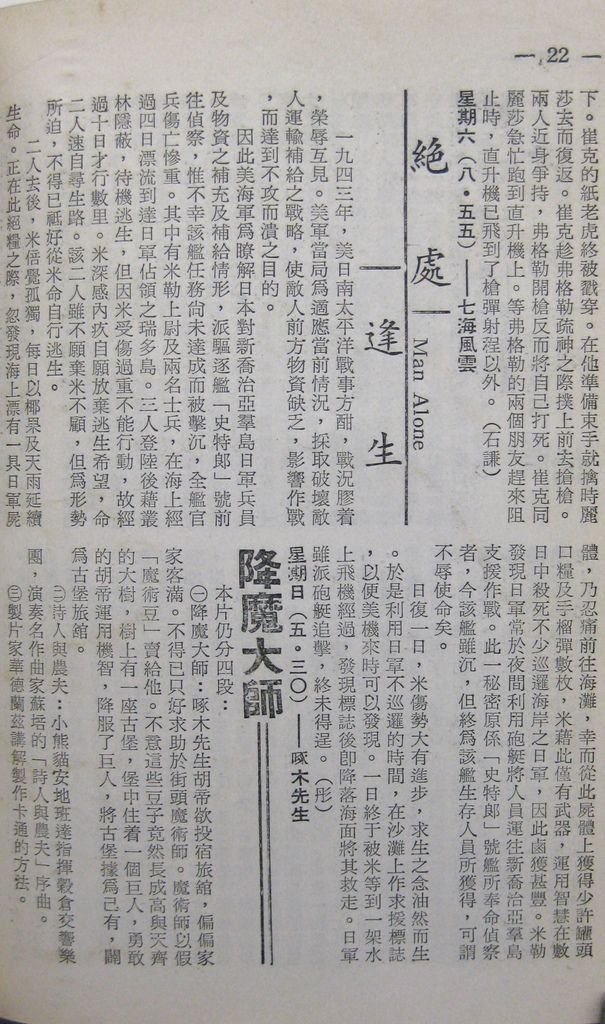 — 22 —
下。崔克的紙老虎終被戳穿。在他準備束手就擒時麗
莎去而復返。崔克趁弗格勒疏神之際撲上前去搶槍。
兩人近身爭持，弗格勒開槍反而將自己打死。崔克同
麗莎急忙跑到直升機上。等弗格勒的兩個朋友趕來阻
止時，直升機已飛到了槍彈射程以外。（石謙）
星期六（八·五五）——七海風雲
絕處逢生
Man Alone
一九四三年，美日南太平洋戰事方酣，戰況膠着
，榮辱互見。美軍當局爲適應當前情況，採取破壞敵
人運輸補給之戰略，使敵人前方物資缺乏，影響作戰
，而達到不攻而潰之目的。
因此美海軍爲瞭解日本對新喬治亞羣島日軍兵員
及物資之補充及補給情形，派驅逐艦「史特郎」號前
往偵察，惟不幸該艦任務尚未達成而被擊沉，全艦官
兵傷亡慘重。其中有米勒上尉及兩名士兵，在海上經
過四日漂流到達日軍佔領之瑞多島。三人登陸後藉叢
林隱蔽，待機逃生，但因米受傷過重不能行動，故經
過十日才行數里。米深感內疚自願放棄逃生希望，命
二人速自尋生路。該二人雖不願棄米不顧，但爲形勢
所迫，不得已祇好從米命自行逃生。
二人去後，米倍覺孤獨，每日以椰果及天雨延續
生命。正在此絕糧之際，忽發現海上漂有一具日軍屍
體，乃忍痛前往海灘，幸而從此屍體上獲得少許罐頭
口糧及手榴彈數枚，米藉此僅有武器，運用智慧在數
日中殺死不少巡邏海岸之日軍，因此鹵獲甚豐。米勒
發現日軍常於夜間利用砲艇將人員運往新喬治亞羣島
支援作戰。此一秘密原係「史特郎」號艦所奉命偵察
者，今該艦雖沉，但終爲該艦生存人員所獲得，可謂
不辱使命矣。
日復一日，米傷勢大有進步，求生之念油然而生
。於是利用日軍不巡邏的時間，在沙灘上作求援標誌
，以便美機來時可以發現。一日終于被米等到一架水
上飛機經過，發現標誌後卽降落海面將其救走。日軍
雖派砲艇追擊，終未得逞。（彤）
星期日（五·三〇）——啄木先生
降魔大師
本片仍分四段：
㊀降魔大師：啄木先生胡帝欲投宿旅舘，偏偏家
家客滿。不得已只好求助於街頭魔術師。魔術師以假
「魔術豆」賣給他。不意這些豆子竟然長成高與天齊
的大樹，樹上有一座古堡，堡中住着一個巨人，勇敢
的胡帝運用機智，降服了巨人，將古堡據爲己有，闢
爲古堡旅舘。
㊁詩人與農夫：小熊貓安地班達指揮穀倉交響樂
團，演奏名作曲家蘇培的「詩人與農夫」序曲。
㊂製片家華德蘭茲講解製作卡通的方法。